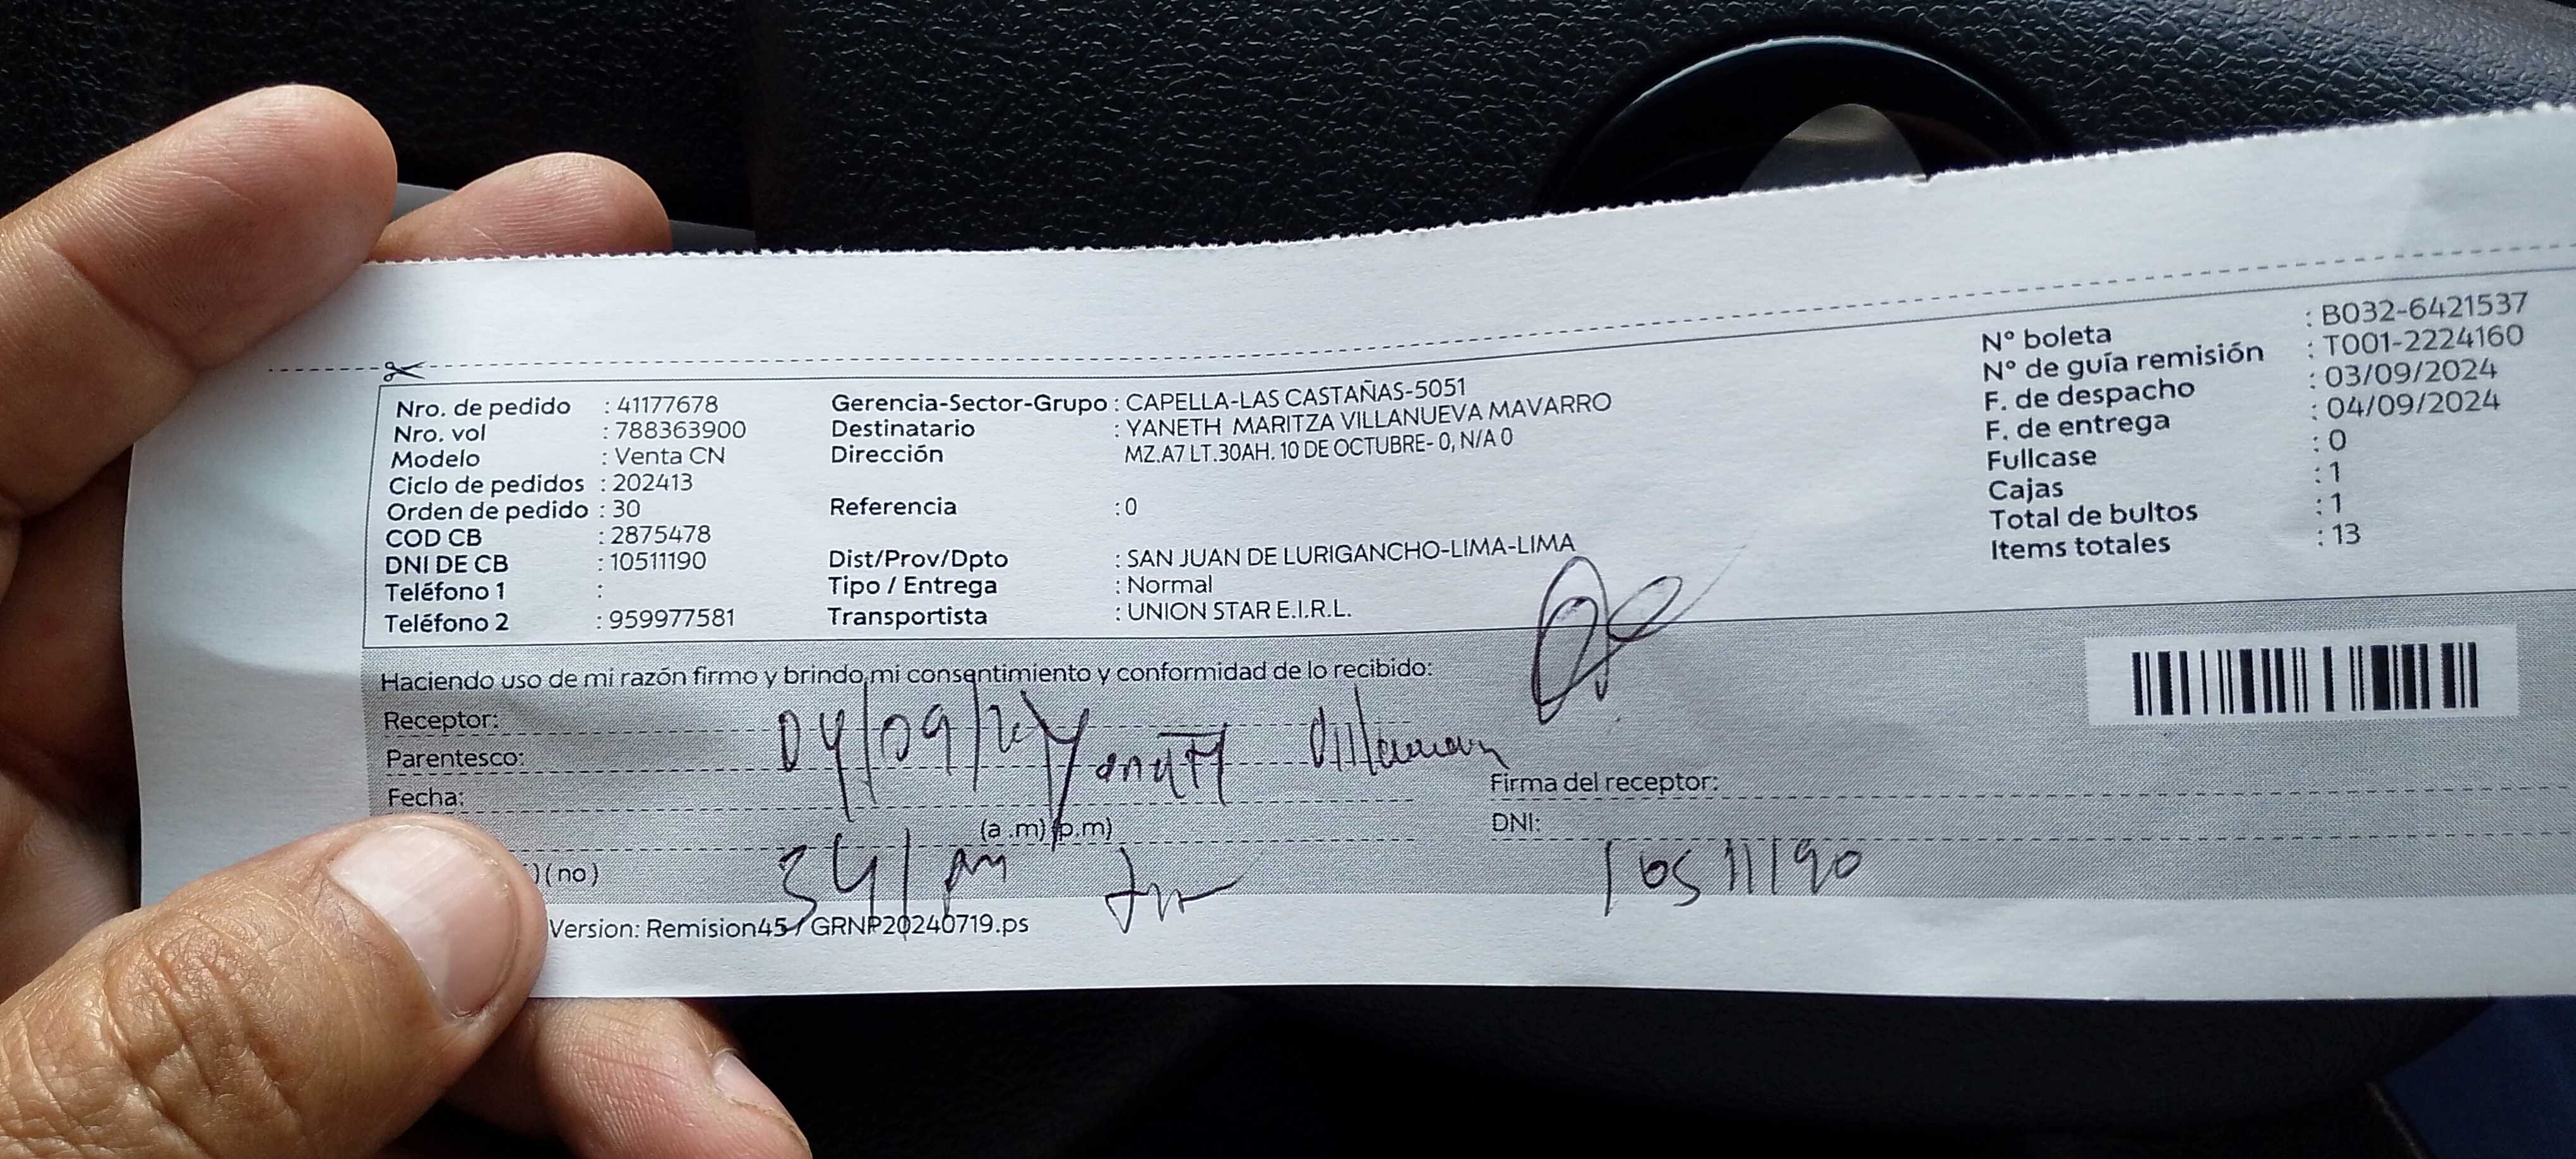 Nro. de pedido : 41177678
Nro. vol : 788363900
Modelo : Venta CN
Ciclo de pedidos : 202413
Orden de pedido : 30
COD CB : 2875478
DNI DE CB : 10511190
Teléfono 1 :
Teléfono 2 : 959977581
Gerencia-Sector-Grupo : CAPELLA-LAS CASTAÑAS-5051
Destinatario : YANETH MARITZA VILLANUEVA MAVARRO
Dirección MZ.A7 LT.30AH. 10 DE OCTUBRE- 0, N/A 0
Referencia : 0
Dist/Prov/Dpto : SAN JUAN DE LURIGANCHO-LIMA-LIMA
Tipo / Entrega : Normal
Transportista : UNION STAR E.I.R.L.
N° boleta : B032-6421537
N° de guía remisión : T001-2224160
F. de despacho : 03/09/2024
F. de entrega : 04/09/2024
Fullcase : 0
Cajas : 1
Total de bultos : 1
Items totales : 13
Haciendo uso de mi razón firmo y brindo mi consentimiento y conformidad de lo recibido:
Receptor:
Parentesco:
04/09/24
Fecha:
(a .m) (p.m)
) ( no )
Firma del receptor:
DNI:
10511190
Version: Remision45 / GRNP20240719.ps